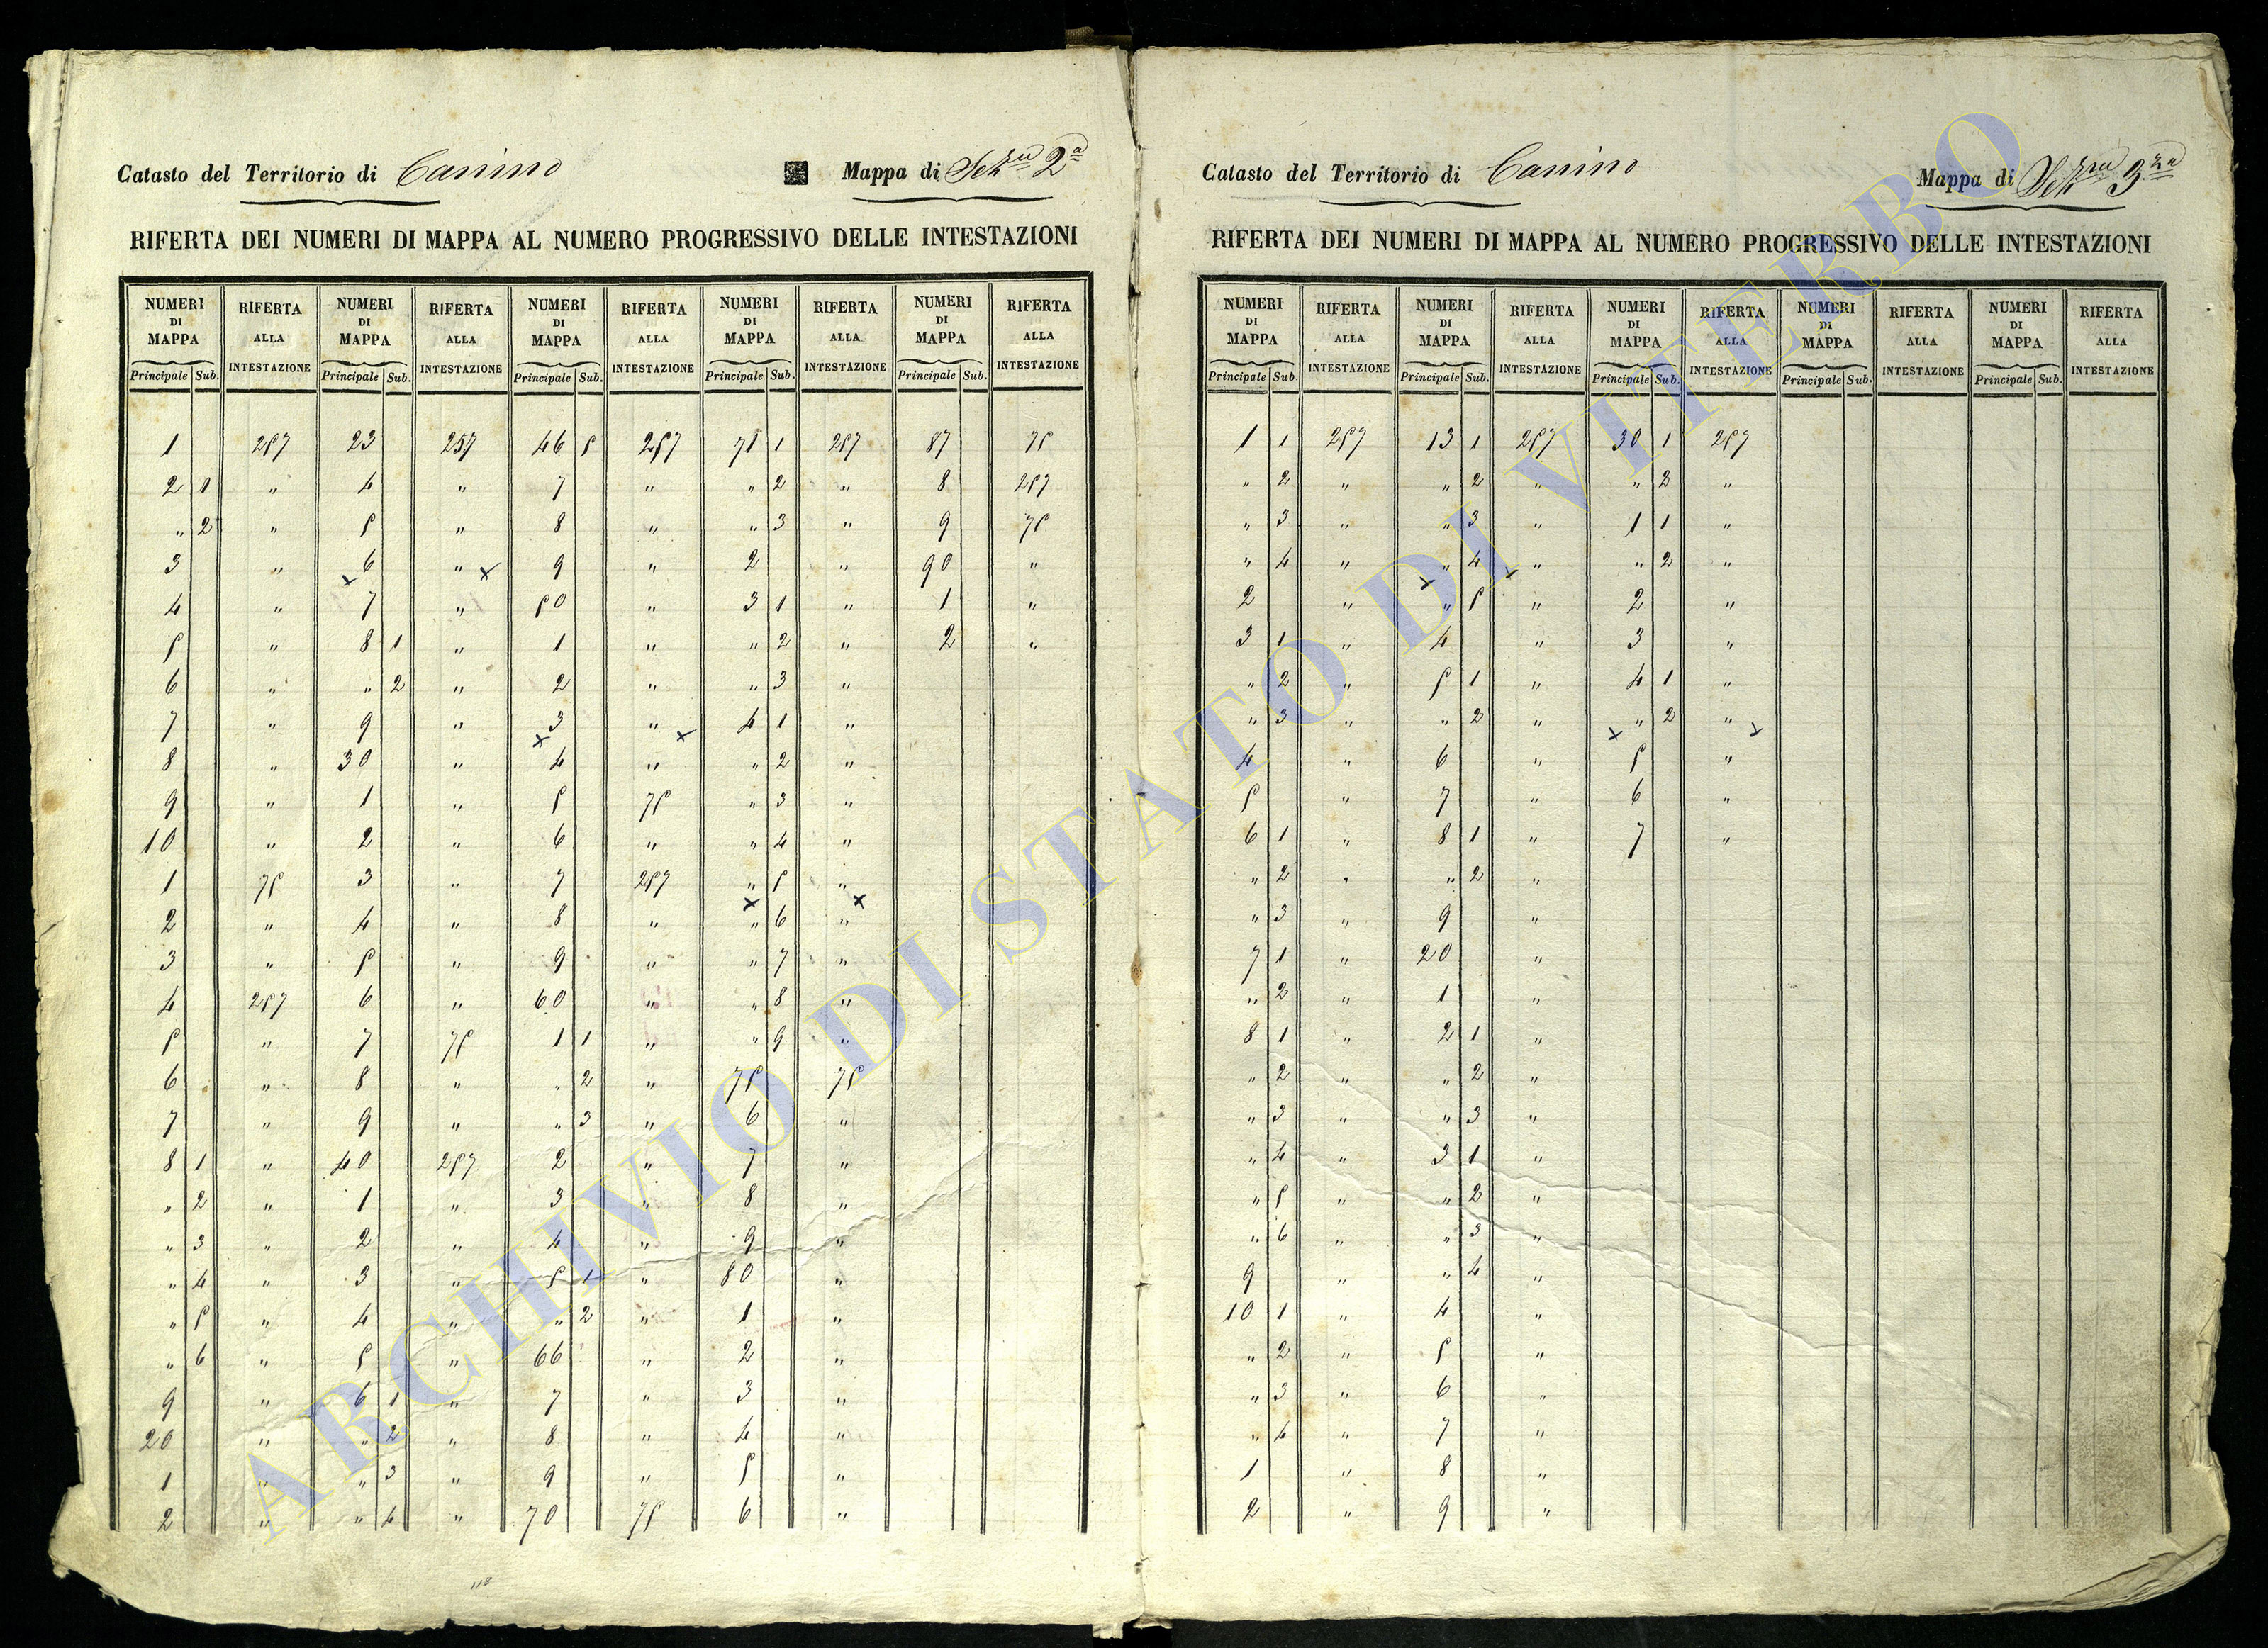 Catasto del Territorio di Canino Mappa di Sez.ne 2a
RIFERTA DEI NUMERI DI MAPPA AL NUMERO PROGRESSIVO DELLE INTESTAZIONI
NUMERI DI MAPPA RIFERTA ALLA INTESTAZIONE NUMERI DI MAPPA RIFERTA ALLA INTESTAZIONE NUMERI DI MAPPA RIFERTA ALLA INTESTAZIONE NUMERI DI MAPPA RIFERTA ALLA INTESTAZIONE NUMERI DI MAPPA RIFERTA ALLA INTESTAZIONE
Principale Sub. Principale Sub. Principale Sub. Principale Sub. Principale Sub.
1 257 23 257 46 5 257 71 1 257 87 75
2 1 " 4 " 7 " " 2 " 8 257
" 2 " 5 " 8 " " 3 " 9 75
3 " 6 " 9 " 2 " 90 "
4 " 7 " 50 " 3 1 " 1 "
5 " 8 1 " 1 " " 2 " 2 "
6 " " 2 " 2 " " 3 "
7 " 9 " 3 " 4 1 "
8 " 30 " 4 " " 2 "
9 " 1 " 5 75 " 3 "
10 " 2 " 6 " " 4 "
1 75 3 " 7 257 " 5 "
2 " 4 " 8 " " 6 "
3 " 5 " 9 " " 7 "
4 257 6 " 60 " " 8 "
5 " 7 75 1 1 " " 9 "
6 " 8 " " 2 " 75 75
7 " 9 " " 3 " 6 "
8 1 " 40 257 2 " 7 "
" 2 " 1 " 3 " 8 "
" 3 " 2 " 4 " 9 "
" 4 " 3 " 5 1 " 80 "
" 5 " 4 " " 2 " 1 "
" 6 " 5 " 66 " 2 "
9 " 6 1 " 7 " 3 "
20 " " 2 " 8 " 4 "
1 " " 3 " 9 " 5 "
2 " " 4 " 70 75 6 "
118
Catasto del Territorio di Canino Mappa di Sez.ne 3za
RIFERTA DEI NUMERI DI MAPPA AL NUMERO PROGRESSIVO DELLE INTESTAZIONI
NUMERI DI MAPPA RIFERTA ALLA INTESTAZIONE NUMERI DI MAPPA RIFERTA ALLA INTESTAZIONE NUMERI DI MAPPA RIFERTA ALLA INTESTAZIONE NUMERI DI MAPPA RIFERTA ALLA INTESTAZIONE NUMERI DI MAPPA RIFERTA ALLA INTESTAZIONE
Principale Sub. Principale Sub. Principale Sub. Principale Sub. Principale Sub.
1 1 257 13 1 257 30 1 257
" 2 " " 2 " " 2 "
" 3 " " 3 " 1 1 "
" 4 " " 4 " " 2 "
2 " " 5 " 2 "
3 1 " 4 " 3 "
" 2 " 5 1 " 4 1 "
" 3 " " 2 " " 2 "
4 " 6 " 5 "
5 " 7 " 6 "
6 1 " 8 1 " 7 "
" 2 " " 2 "
" 3 " 9 "
7 1 " 20 "
" 2 " 1 "
8 1 " 2 1 "
" 2 " " 2 "
" 3 " " 3 "
" 4 " 3 1 "
" 5 " " 2 "
" 6 " " 3 "
9 " " 4 "
10 1 " 4 "
" 2 " 5 "
" 3 " 6 "
" 4 " 7 "
1 " 8 "
2 " 9 "
ARCHIVIO DI STATO DI VITERBO